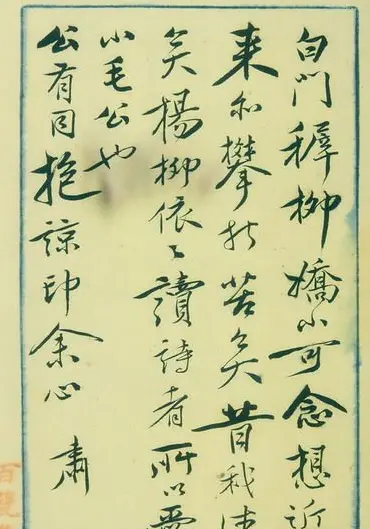 白門稺柳嬌小可念想近
来亦攀折苦矣昔我往
矣楊柳依〻讀詩者所以
小毛公也
公有同抱諒印余心 肅